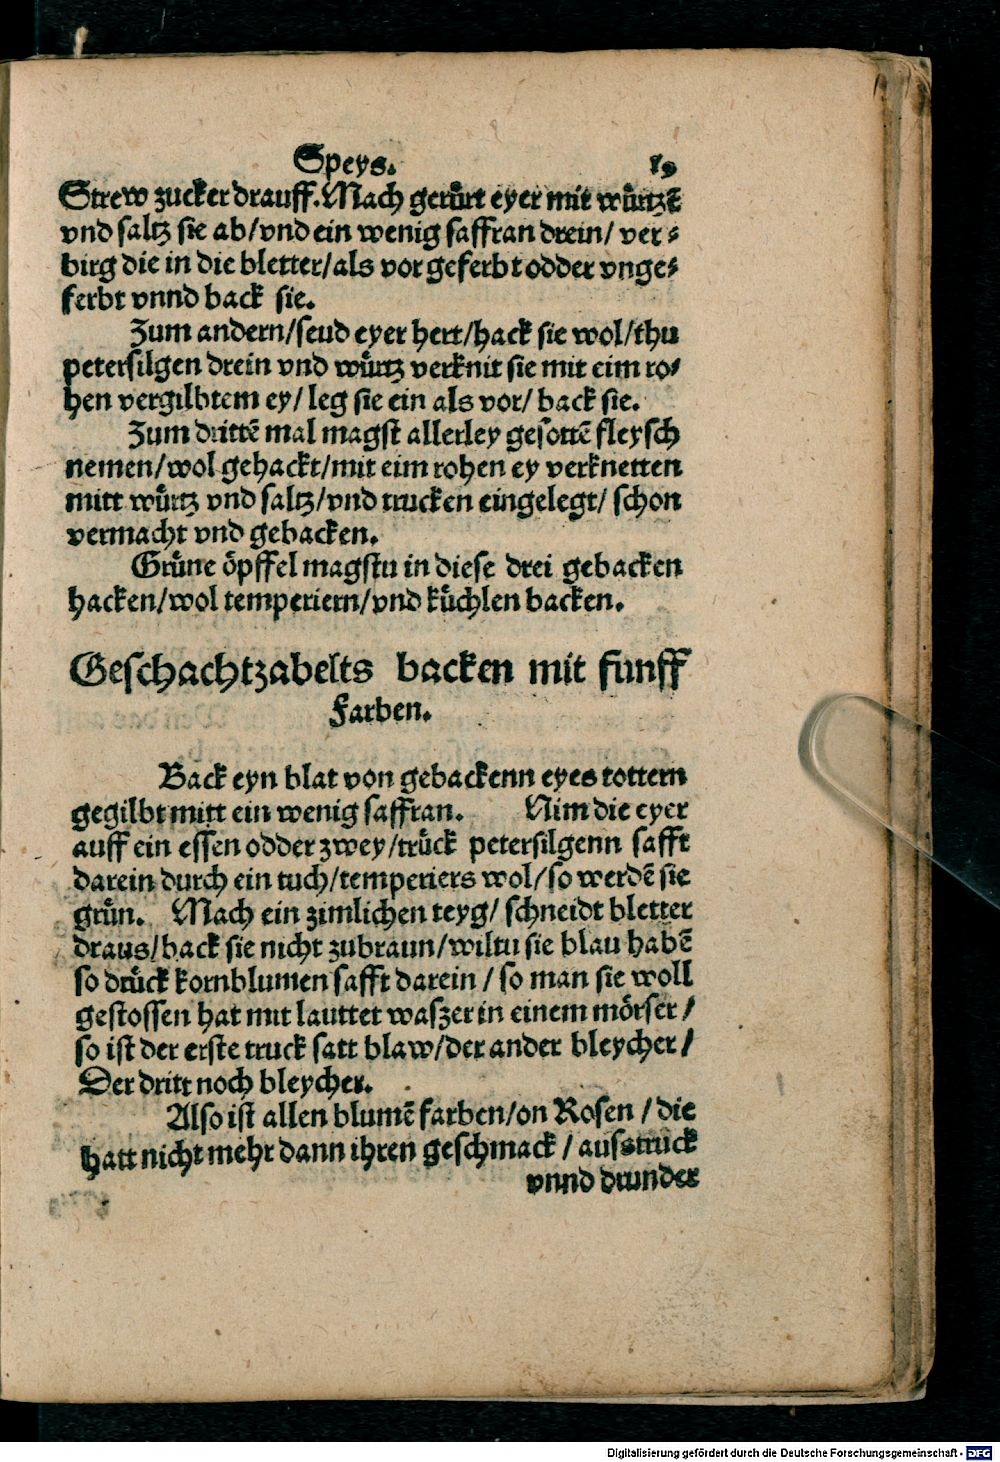 Speys. 19
Strew zucker drauff. Mach gerůrt eyer mit wůrtzē
vnd saltz sie ab/vnd ein wenig saffran drein/ ver⸗
birg die in die bletter/als vor geferbt odder vnge⸗
ferbt vnnd back sie.
Zum andern/seud eyer hert/hack sie wol/thu
petersilgen drein vnd wůrtz verknit sie mit eim ro⸗
hen vergilbtem ey/ leg sie ein als vor/ back sie.
Zum drittē mal magst allerley gesottē fleysch
nemen/wol gehackt/mit eim rohen ey verknetten
mitt wůrtz vnd saltz/vnd trucken eingelegt/ schon
vermacht vnd gebacken.
Grůne öpffel magstu in diese drei gebacken
hacken/wol temperiern/vnd kůchlen backen.
Geschachtzabelts backen mit funff
Farben.
Back eyn blat von gebackenn eyes tottern
gegilbt mitt ein wenig saffran. Nim die eyer
auff ein essen odder zwey/trůck petersilgenn safft
darein durch ein tuch/temperiers wol/so werdē sie
grůn. Mach ein zimlichen teyg/ schneidt bletter
draus/back sie nicht zubraun/wiltu sie blau habē
so drůck kornblumen safft darein / so man sie woll
gestossen hat mit lauttet waszer in einem mörser /
so ist der erste truck satt blaw/der ander bleycher /
Der dritt noch bleycher.
Also ist allen blumē farben/on Rosen / die
hatt nicht mehr dann ihren geschmack / ausstruck
vnnd drunder
Digitalisierung gefördert durch die Deutsche Forschungsgemeinschaft - DFG